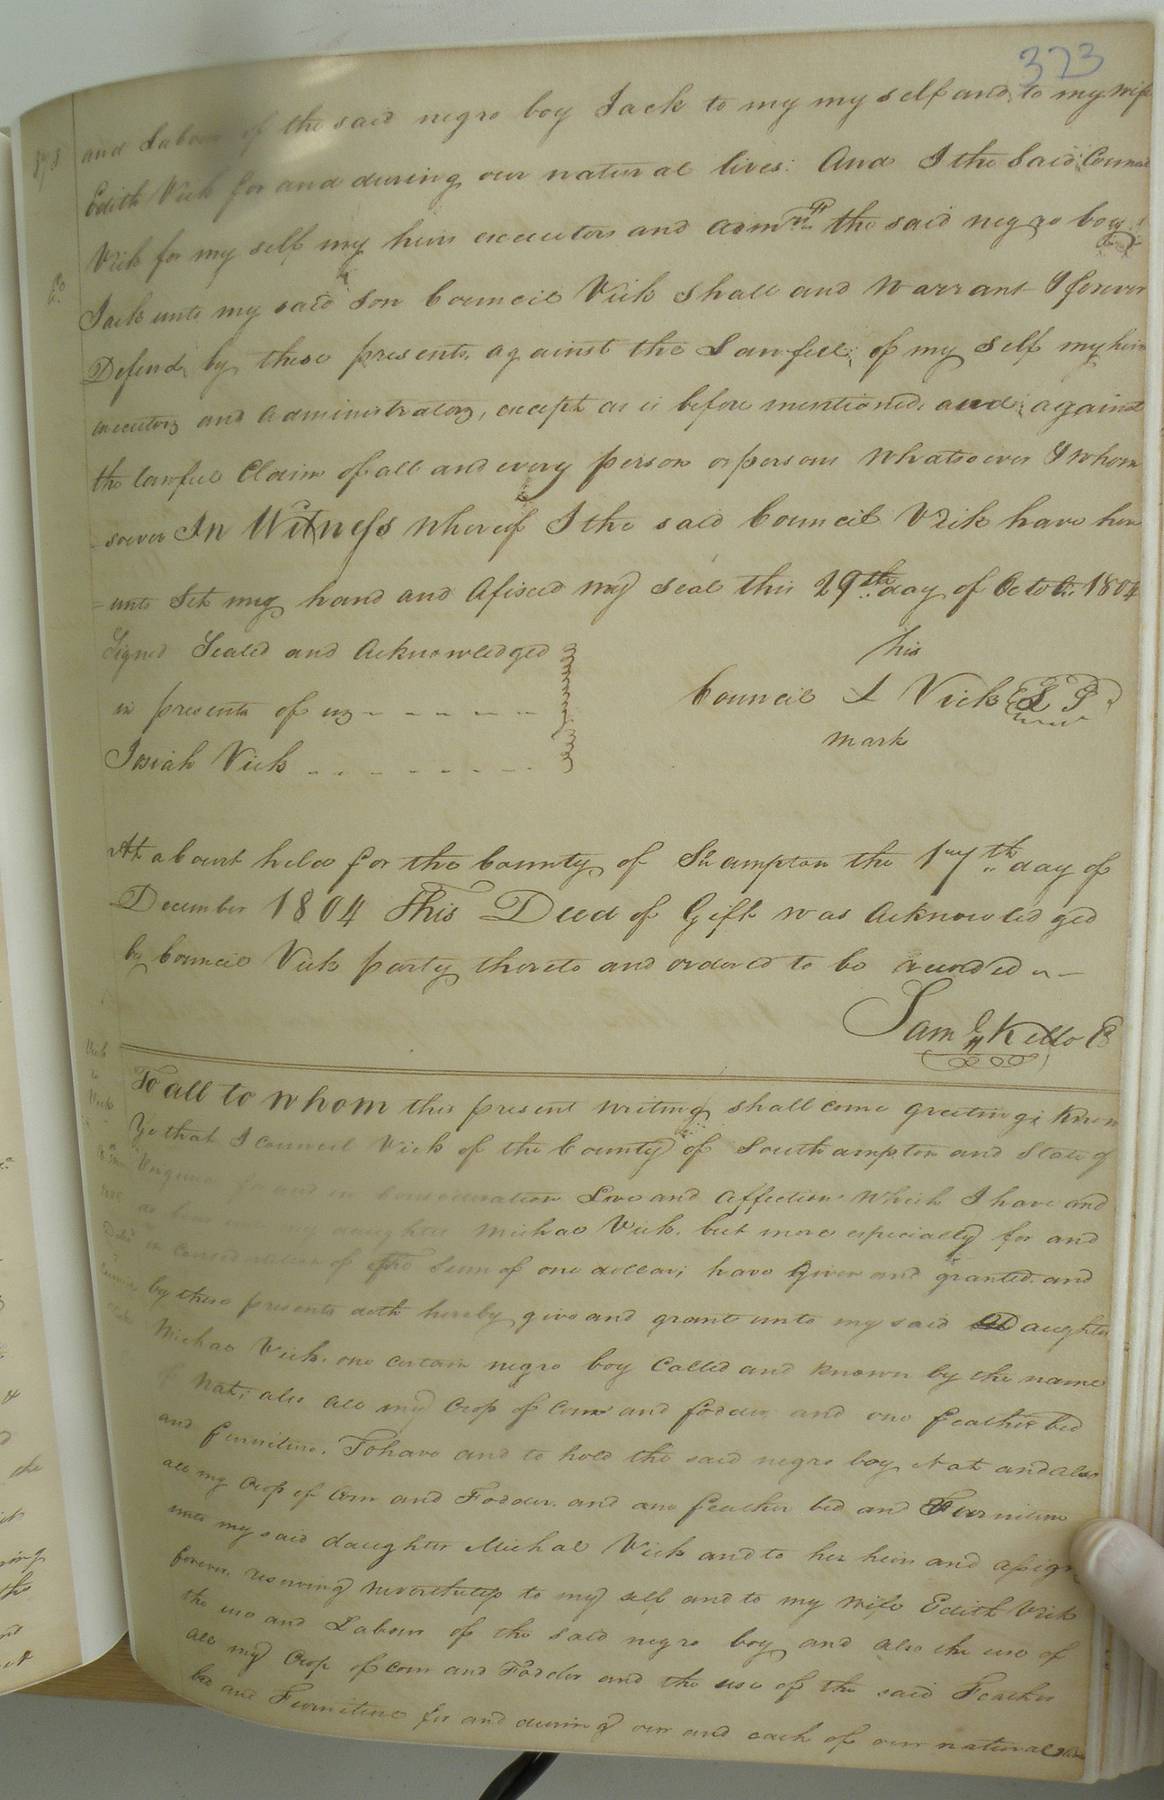 373
and Labour of the said negro boy Jack to my my self and to my wife
Edith Vick for and during our natural lives: And I the Said Council
Vick for my self my heirs executors and admrs the said negro boy
Jack unto my said Son Council Vick Shall and Warrant & forever
Defend by these presents against the Lawfull of my Self my heirs
executors and administrators, except as is before mentioned, and against
the lawfull Claim of all and every person or persons Whatsoever & whom
soever In Witness Whereof I the said Council Vick have here
=unto Set my hand and Afixed my Seal this 29th day of Octob: 1804
Signed Sealed and Acknowledged
in presents of us
Josiah Vick
his
Council Vick L S
mark
At a Court held for the County of Sthampton the 17th day of
December 1804 This Deed of Gift was Acknowledged
by Council Vick party thereto and ordered to be recorded
Saml Kello C
To all to whom this present writing shall come greeting; Know
Ye that I Council Vick of the County of Southampton and State of
Virginia for and in Consideration Love and Affection Which I have and
do bear unto my daughter Michal Vick, but more especially for and
in consideration of the Sum of one dollar; have Given and granted, and
by these presents doth hereby give and grant unto my said Daughter
Michal Vick, one certain negro boy Called and known by the name
of Nat; also all my Crop of Corn and fodder, and one feather bed
and furniture. To have and to hold the said negro boy Nat and also
all my Crop of Corn and Fodder, and one feather bed and Furniture
unto my said daughter Michal Vick and to her heirs and assigns
forever, reserving nevertheless to my self and to my wife Edith Vick
the use and Labour of the said negro boy and also the use of
all my Crop of corn and Fodder and the use of the said Feather
bed and Furniture for and during our and each of our natural